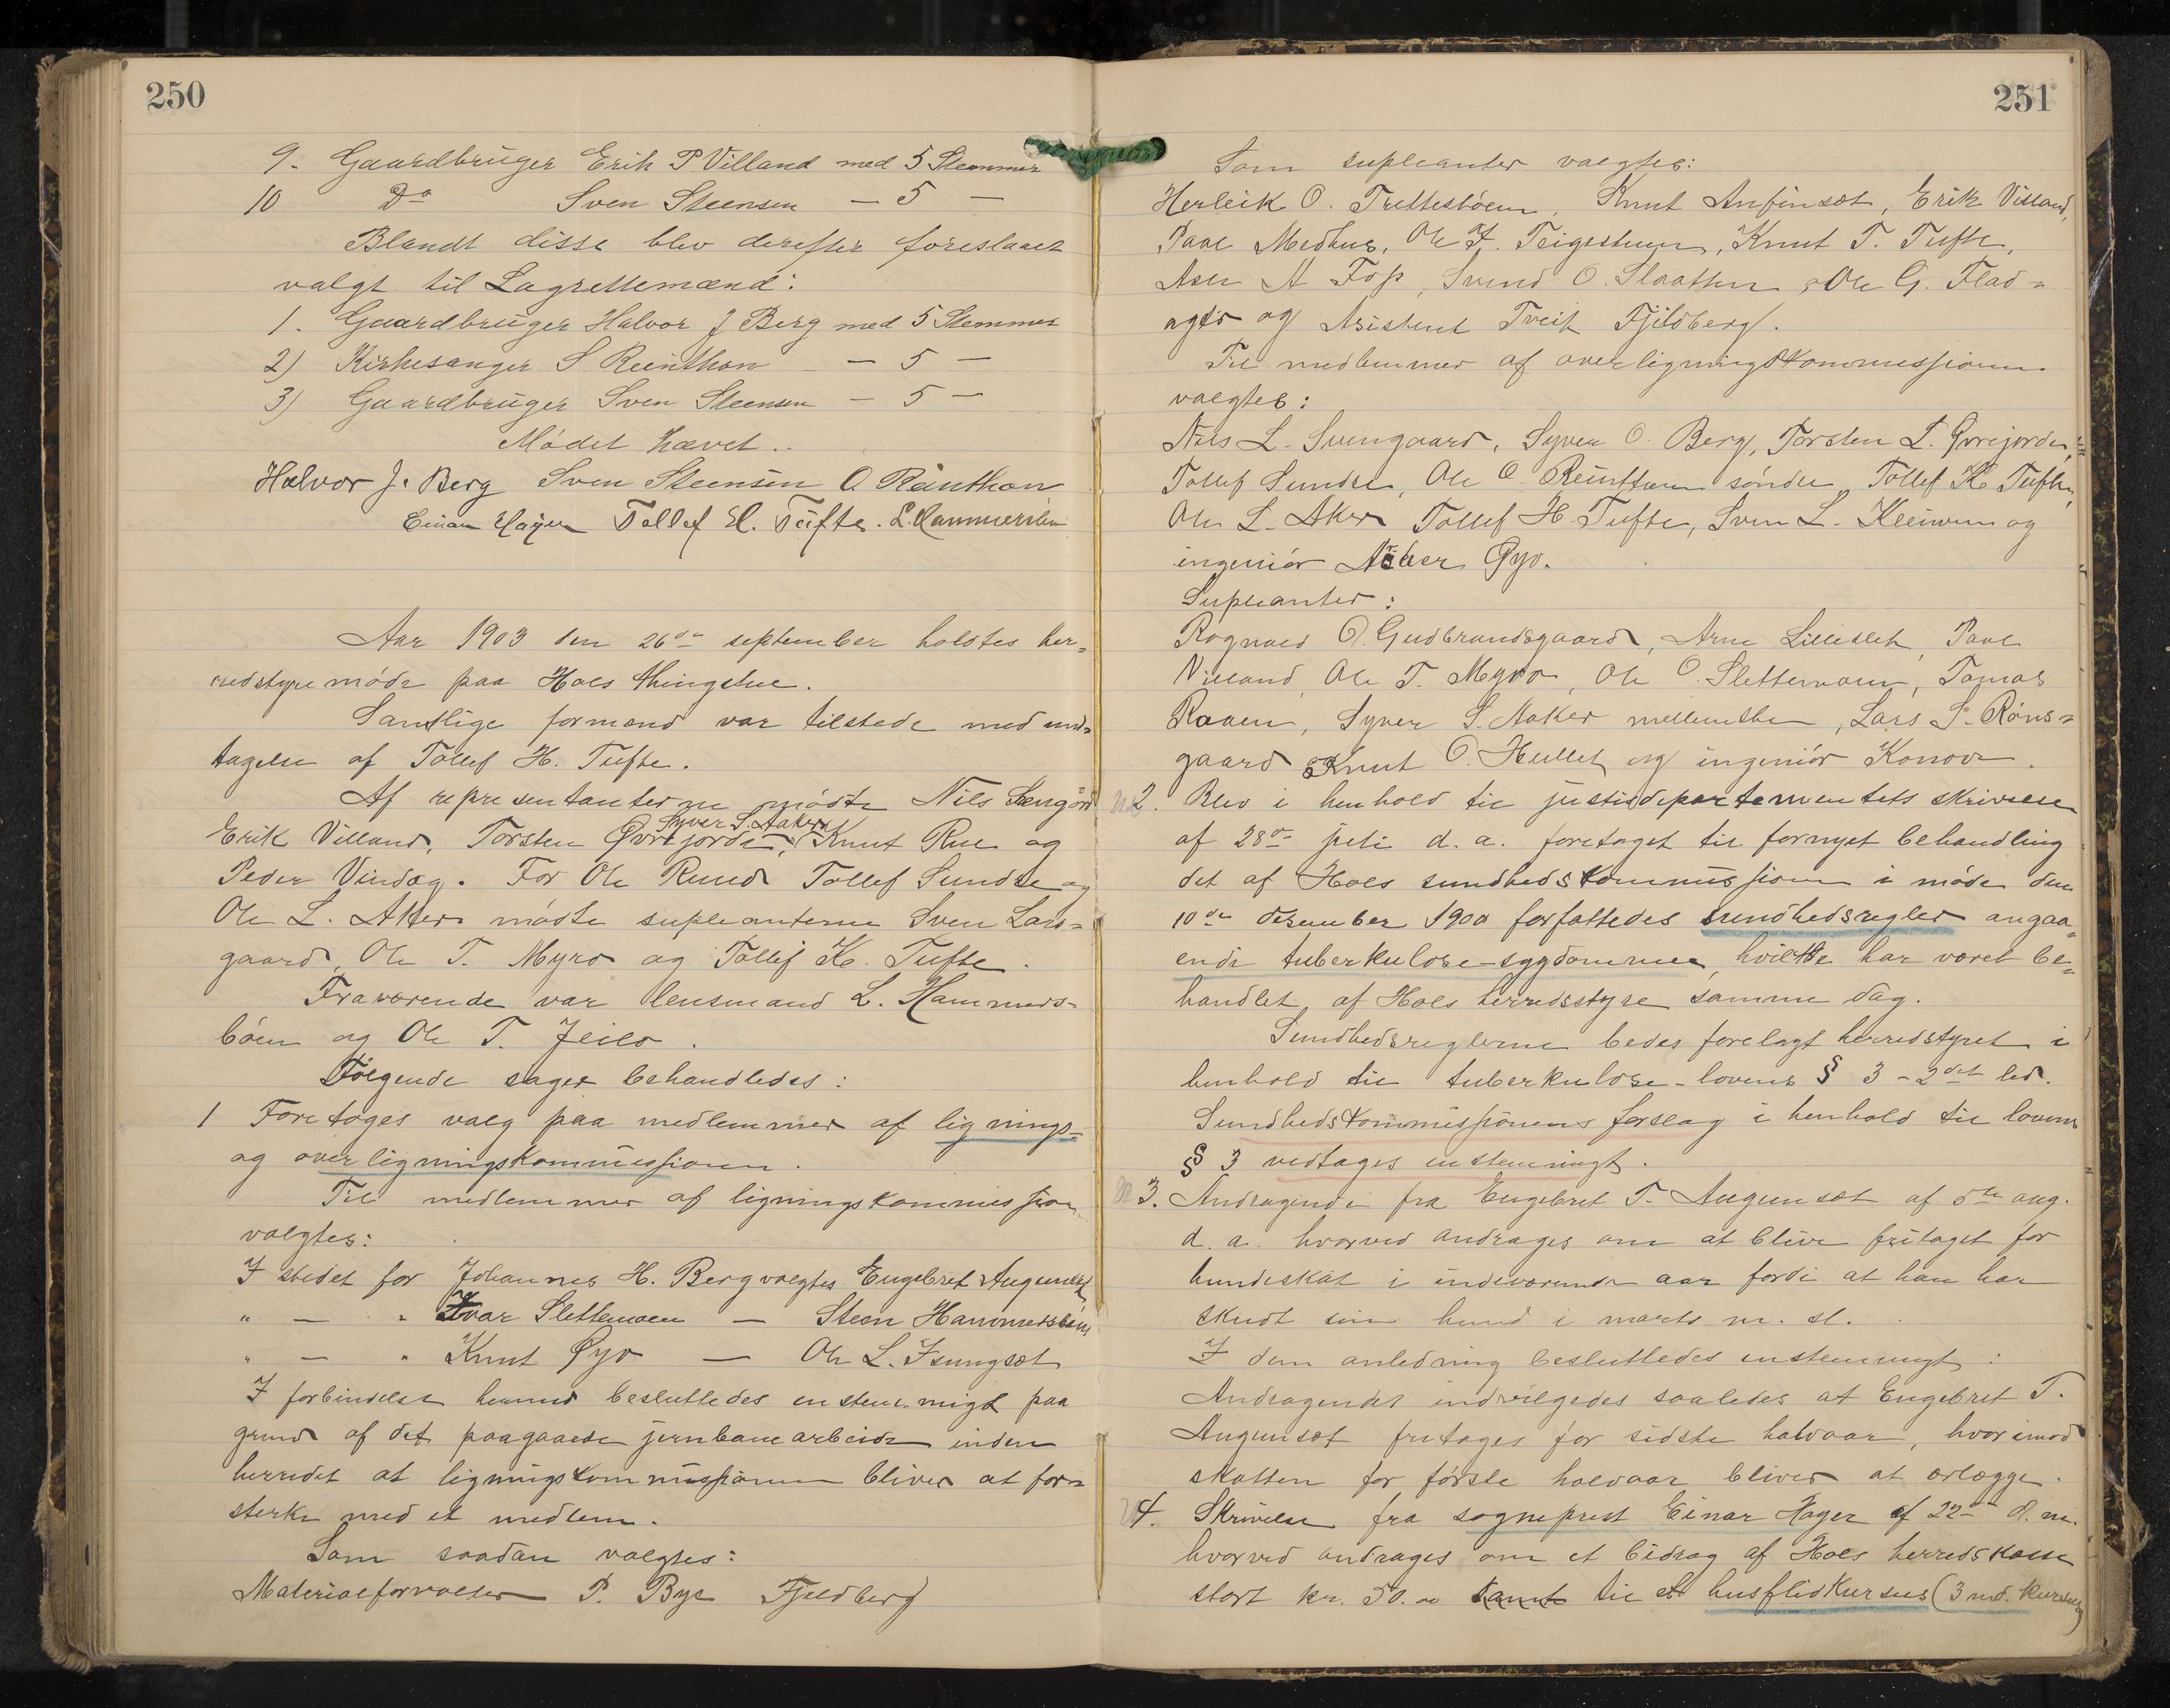 250
9. Gaardbruger Erik P Villand med 5 Stemmer
10 Do Sven Steensen — 5 —
Blandt disse blev derefter foreslaaet
valgt til Lagrettemænd:
1. Gaardbruger Halvor J Berg med 5 Stemmer
2) Kirkesanger S Reinthon — 5 —
3) Gaardbruger Sven Steensen — 5 —
Mødet hævet..
Halvor J. Berg Sven Steensen O Reinthon
Einar Hager Tollef H. Tufte. L. Hammersbøen
Aar 1903 den 26de september holdtes her-
redstyremøde paa Hols thingstue.
Samtlige formænd var tilstede med und-
tagelse af Tollef H. Tufte.
Af representanterne mødte Nils
Syver S. Aaker
Erik Villand, Torsten Øvrejorde, Knut Rue og
Peder Vindeg. For Ole Ruud Tollef Sundre og
Ole L. Aker mødte supleanterne Sven Lars-
gaard, Ole T. Myro og Tollef K. Tufte.
Fraværende var lensmand L. Hammers-
bøen og Ole T. Jeilo.
Følgende sager behandledes:
1 Foretages valg paa medlemmer af lignings-
og overligningskommissionen.
Til medlemmer af ligningskommission
valgtes:
I stedet for Johannes H. Berg valgtes Engebret Augunset
" — " Ivar Slettemoen — Steen Hammersbøen
" — " Knut Øyo — Ole L. Isungset
I forbindelse hermed besluttedes enstemmigt paa
grund af det paagaaede jernbanearbeide inden
herredet at ligningskommissionen bliver at for-
sterke med et medlem.
Som saadan valgtes:
Materialforvalter P. Bye Fjeldberg
251
Som supleanter valgtes:
Herleik O. Trettestøen, Knut Anfinset, Erik Villand,
Paal Medhus, Ole I. Teigestuen, Knut T. Tufte,
Asle A Foss, Svend O. Slaatten, Ole G. Flad-
ager og Asistent Tveit Fjeldberg.
Til medlemmer af overligningskommissionen
valgtes:
Nils L. Svengaard, Syver O. Berg, Torsten L. Øvrejorde,
Tollef Sundre, Ole O. Reinton søndre, Tollef K. Tufte,
Ole L. Aker Tollef H. Tufte, Sven L. Kleivene og
ingeniør Øyo.
Supleanter:
Rognald O. Gudbrandsgaard, Arne Lilleslet, Paal
Villand, Ole T. Myro, Ole O. Slettemoen, Tomas
Raaen, Syver S. Aaker mellemste, Lars S. Røns-
gaard Knut O. Hullet og ingeniør Konow.
2. Blev i henhold til justisdepartementets skrivelse
af 28de juli d. a. foretaget til fornyet behandling
det af Hols sundhedskommission i møde den
10de desember 1900 forfattedes sundhedsregler angaa-
ende tuberkulose-sygdommen, hvilke har været be-
handlet af Hols herredsstyre samme dag.
Sundhedsreglerne bedes forelagt herredstyret i
henhold til tuberkulose-lovens § 3 - 2det led.
Sundhedskommissionens forslag i henhold til lovens
§ 3 vedtages enstemmigt.
3. Andragende fra Engebret T. Augunset af 5te aug.
d. a. hvorved andrages om at blive fritaget for
hundeskat i indeværende aar fordi at han har
skudt sin hund i marts m. st.
I den anledning besluttedes enstemmigt:
Andragendet indvilgedes saaledes at Engebret T.
Augunset fritages for sidste halvaar, hvorimod
skatten for første halvaar bliver at erlegge.
4. Skrivelse fra sogneprest Einar Hager af 22de d. m.
hvorved andrages om et bidrag af Hols herredskasse
stort kr. 50.00 samt til et husflidkursus (3 md. kursus)